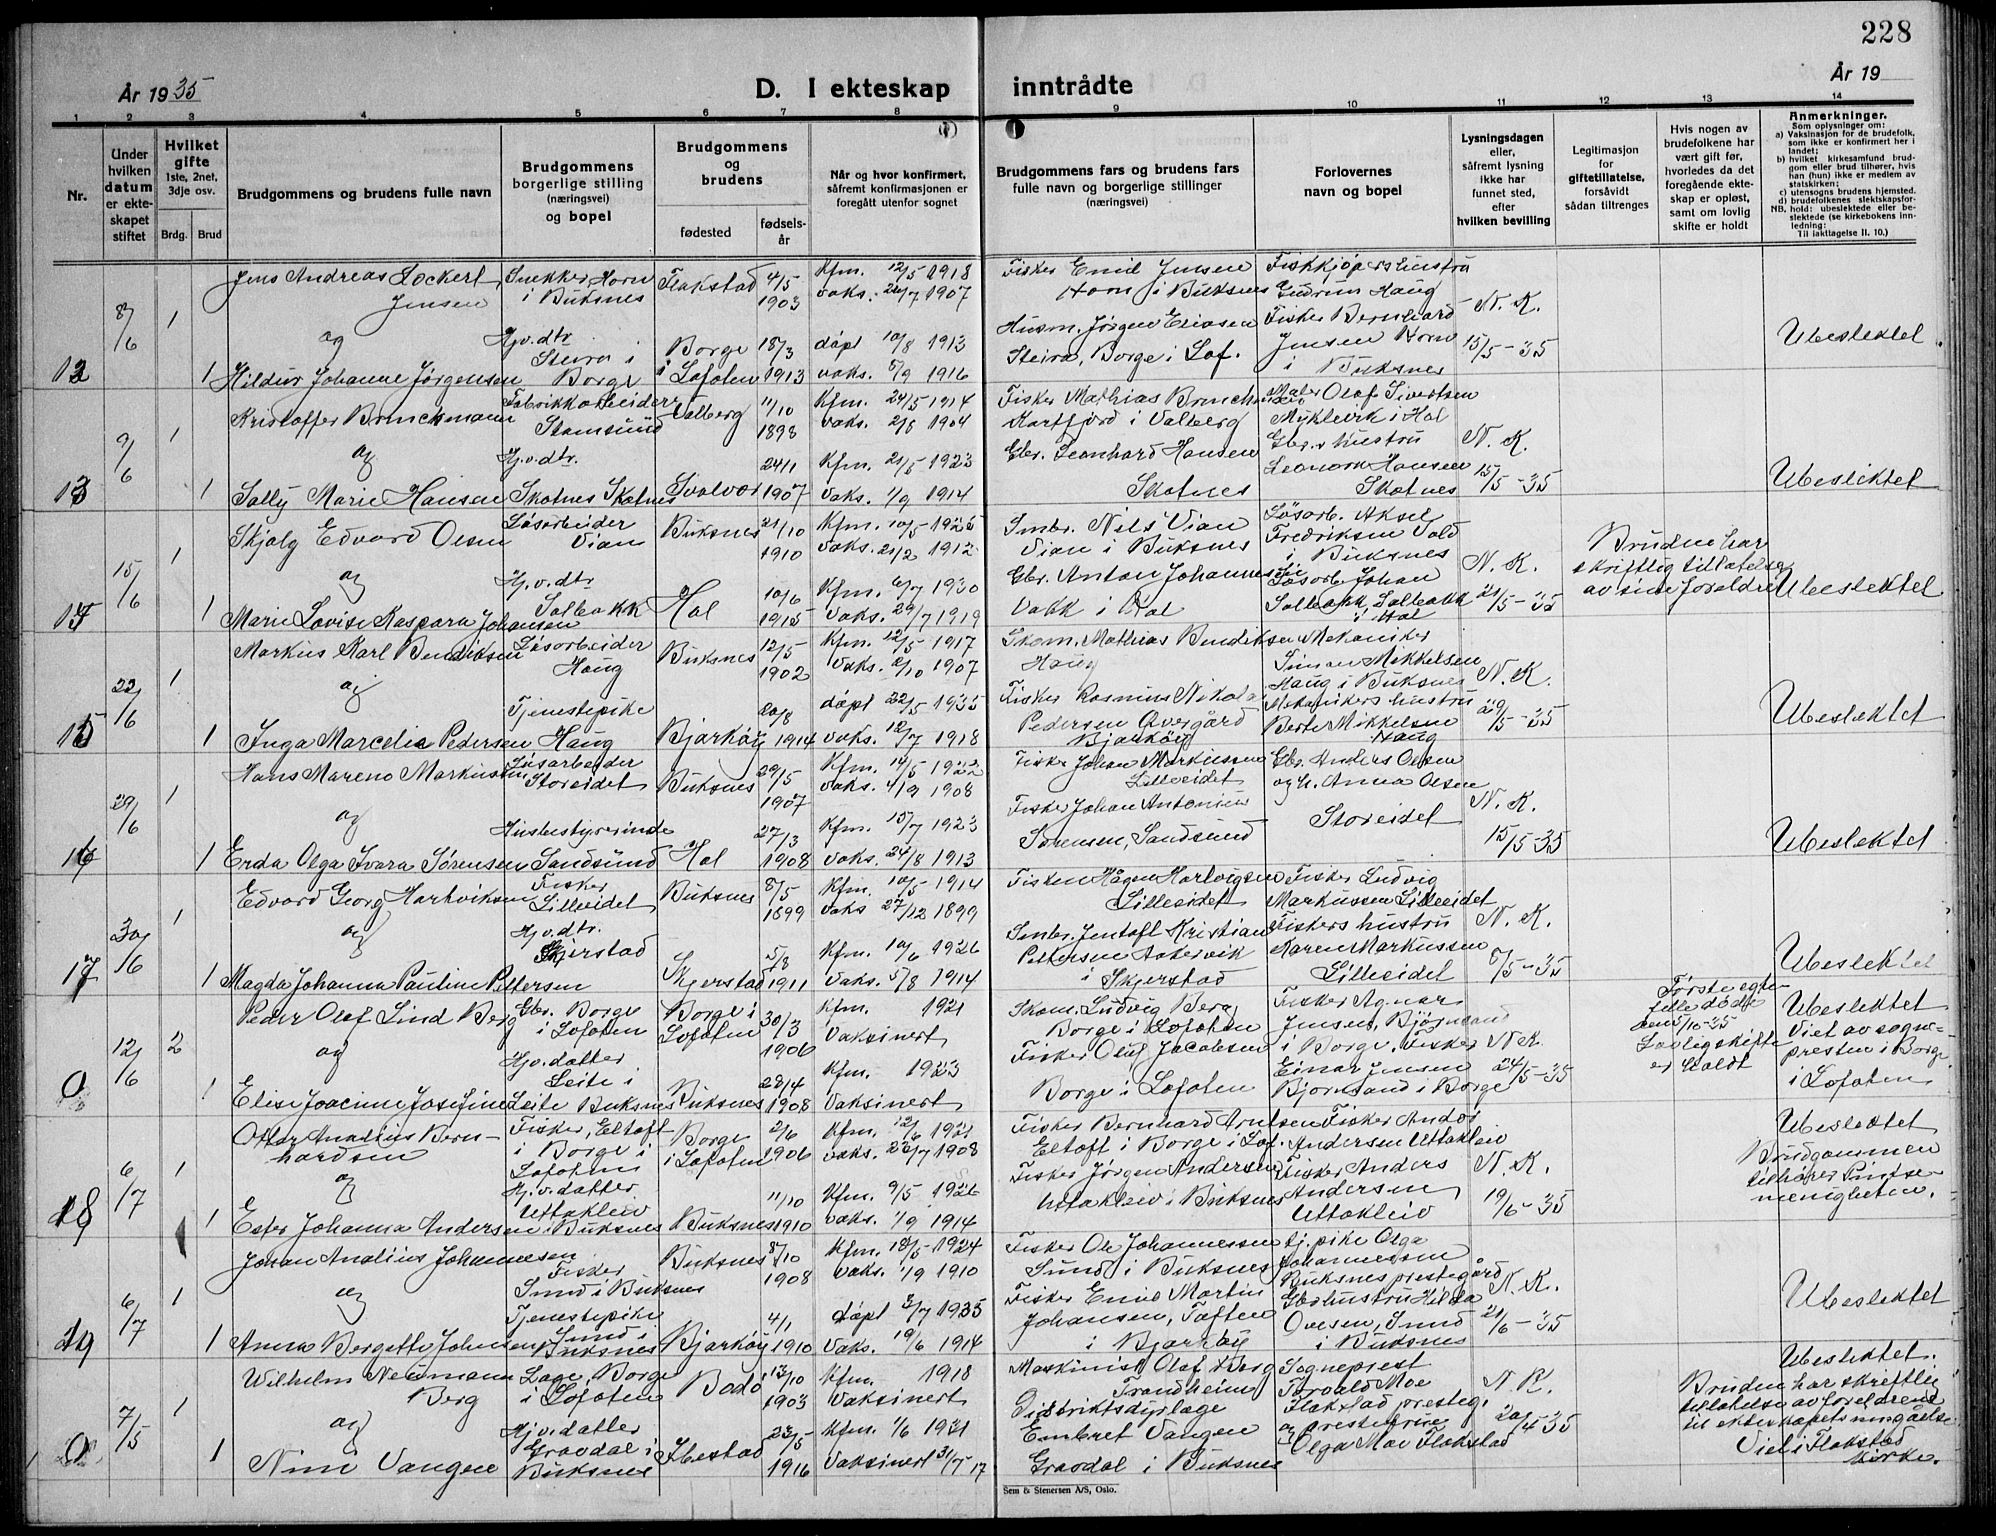 228
År 1935
D. I ekteskap inntrådte
År 19
1 2 3 4 5 6 7 8 9 10 11 12 13 14
Nr.
Under hvilken datum er ekteskapet stiftet
Hvilket gifte 1ste, 2net, 3dje osv.
Brdg. Brud
Brudgommens og brudens fulle navn
Brudgommens borgerlige stilling (næringsvei) og bopel
Brudgommens og brudens
fødested
fødselsår
Når og hvor konfirmert, såfremt konfirmasjonen er foregått utenfor sognet
Brudgommens fars og brudens fars fulle navn og borgerlige stillinger (næringsvei)
Forlovernes navn og bopel
Lysningsdagen eller, såfremt lysning ikke har funnet sted, efter hvilken bevilling
Legitimasjon for giftetillatelse, forsåvidt sådan tiltrenges
Hvis nogen av brudefolkene har vært gift før, hvorledes da det foregående ekteskap er opløst, samt om lovlig skifte er holdt
Anmerkninger.
Som oplysninger om:
a) Vaksinasjon for de brudefolk, som ikke er konfirmert her i landet;
b) hvilket kirkesamfund brudgom eller brud tilhører, hvis han (hun) ikke er medlem av statskirken;
c) utensogns brudens hjemsted.
d) brudefolkenes slektskapsforhold: ubeslektede eller beslektede (se kirkebokens innledning:
NB.
Til iakttagelse II. 10.)
12 8/6 1 Jens Andreas Lockert Jensen Snekker Horn i Buksnes Flakstad 4/5 1903 Kfm. 12/5 1918 vaks. 1907 Fisker Emil Jensen Horn i Buksnes Fiskkjøpershustru Gudrun Haug
og
1 Hildur Johanne Jørgensen Hjv. dtr. Steira i Borge Borge i Lofoten 18/3 1913 døpt 10/8 1913 vaks. 5/9 1916 Husm. Jørgen Eriasen Steira, Borge i Lof. Fisker Bernhard Jensen Horn i Buksnes N. K. 15/5-35 Ubeslektet
13 9/6 1 Kristoffer Brinckmann Fabrikkarbeider Stamsund Valberg 11/10 1898 Kfm. 24/5 1914 vaks. 2/8 1904 Fisker Mathias Brinckmann i Valberg Maler Olaf Sivertsen Myklevik i Hol
og
1 Solly Marie Hansen Hj.v.dtr. Skotnes Skotnes Svolvær 24/1 1907 Kfm. 21/5 1923 vaks. 1/9 1914 Gbr. Leonhard Hansen Skotnes Gbr.s hustru Leonora Hansen Skotnes N. K. 15/5-35 Ubeslektet
15/6 1 Skjalg Edvard Olsen Løsarbeider Vian Buksnes 21/10 1910 Kfm. 10/5 1925 vaks. 21/2 1912 Smbr. Nils Vian Vian i Buksnes Løsarb. Aksel Fredriksen Vold i Buksnes
og
1 Marie Lovise Kaspara Johansen Hj.v.dtr. Solbakk Hol 10/6 1915 Kfm. 6/7 1930 vaks. 29/7 1919 Gbr. Anton Johannessen i Hol Løsarb. Johan Solbakk, Solbakk i Hol N. K. 21/5-35 Bruden har skriftlig tillatelse av sine foreldre Ubeslektet
15 22/6 1 Markus Karl Bendiksen Løsarbeider Haug Buksnes 12/5 1902 Kfm. 12/5 1917 vaks. 2/10 1907 Skom. Mathias Bendiksen Haug Mekaniker Simon Mikkelsen Haug i Buksnes
og
1 Inga Marcelie Pedersen Tjenestepike Haug Bjarkøy 20/8 1914 døpt 22/5 1935 vaks. 12/7 1918 Fisker Rasmus Nikolai Pedersen Øvergård Bjarkøy Mekanikers hustru Berte Mikkelsen Haug N. K. 29/5-35 Ubeslektet
16 29/6 1 Hans Mareno Markussen Løsarbeider Storeidet Buksnes 29/5 1907 Kfm. 14/5 1922 vaks. 4/9 1908 Fisker Johan Markussen Lilleeidet Gbr. Anders Olsen og h. Anna Olsen Storeidet
og
1 Erda Olga Ivara Sørensen Husbestyrerinde Sandsund Hol 27/3 1908 Kfm. 15/7 1923 vaks. 24/8 1913 Fisker Johan Antonius Sørensen, Sandsund N. K. 15/5-35 Ubeslektet
17 30/6 1 Edvard Georg Hartviksen Fisker Lilleeidet Buksnes 8/5 1899 Kfm. 10/5 1914 vaks 27/12 1899 Fisker Hågen Hartvigsen Lilleeidet Fisker Ludvig Markussen Lilleeidet
og
1 Magda Johanna Pauline Pettersen Hj.v.dtr. Skjerstad Skjerstad 5/3 1911 Kfm. 10/6 1926 vaks. 5/8 1914 Smbr. Jentoft Kristian Pettersen i Skjerstad Fiskers hustru Maren Markussen Lilleeidet N. K. 8/5-35 Ubeslektet
0 12/6 2 Peder Olaf Lind Berg Gbr. Borge i Lofoten Borge i Lofoten 30/3 1906 Kfm. 1921 Vaksinert Skom. Ludvig Berg Borge i Lofoten Fisker Agnar Jensen, Bjørnsand i Borge. Første egtefelle døde den 5/10-35 Lovlig skifte er holdt
og
1 Elise Joacime Josefine Leite Hj.v.datter Leite i Buksnes Buksnes 28/4 1908 Kfm. 1923 Vaksinert Fisker Oluf Jacobsen Borge i Lofoten Fisker Einar Jensen Bjørnsand i Borge N.K. 24/5-35 Ubeslektet Viet av sognepresten i Borge i Lofoten
18 6/7 1 Ottar Analius Bernhardsen Fisker, Eltoft i Borge i Lofoten Borge i Lofoten 2/6 1906 Kfm. 12/6 1921 vaks. 1908 Fisker Bernhard Arntsen Eltoft i Borge i Lof. Fisker Andor Andersen Uttakleiv
og
1 Ester Johanna Andersen Hj.v.datter Uttakleiv i Buksnes Buksnes 11/10 1910 Kfm. 9/5 1926 vaks. 1/9 1914 Fisker Jørgen Andersen Uttakleiv i Buksnes Fisker Anders Andersen Uttakleiv N. K. 19/6-35 Ubeslektet Brudgommen tilhører Pinsemenigheten.
19 6/7 1 Johan Analius Johannesen Fisker Sund i Buksnes Buksnes 8/10 1908 Kfm. 18/5 1924 vaks. 1/9 1910 Fisker Ole Johannessen Sund i Buksnes tj. pike Olga Johannessen Buksnes prestegård
og
1 Anna Bergette Johansen Tjenestepike Sund i Buksnes Bjarkøy 4/1 1910 døpt 3/7 1935 vaks. 19/6 1914 Fisker Emil Martin Johansen, Toften i Bjarkøy Gbrhustru Hilda Ovesen, Sund i Buksnes N. K. 21/6-35 Ubeslektet
0 7/5 1 Wilhelm Neumann Berg Borge i Lofoten Bodø 13/10 1903 Kfm. 1918 Vaksinert Maskinist Olaf Berg Trondheim Sogneprest Torvald Moe Flakstad presteg.
og
1 Nini Vangen Hj.v.datter Gravdal i Buksnes Ibestad 23/5 1916 Kfm. 1/6 1931 Vaksinert 31/5 17 Distriktsdyrlæge Embret Vangen Gravdal i Buksnes og prestefrue Olga Moe Flakstad N. K. 20/4-35 Ubeslektet. Bruden har skreftlig tillatelse av foreldrene til ekteskapets inngåelse Viet i Flakstad kirke.
Sem & Stenersen A/S, Oslo.